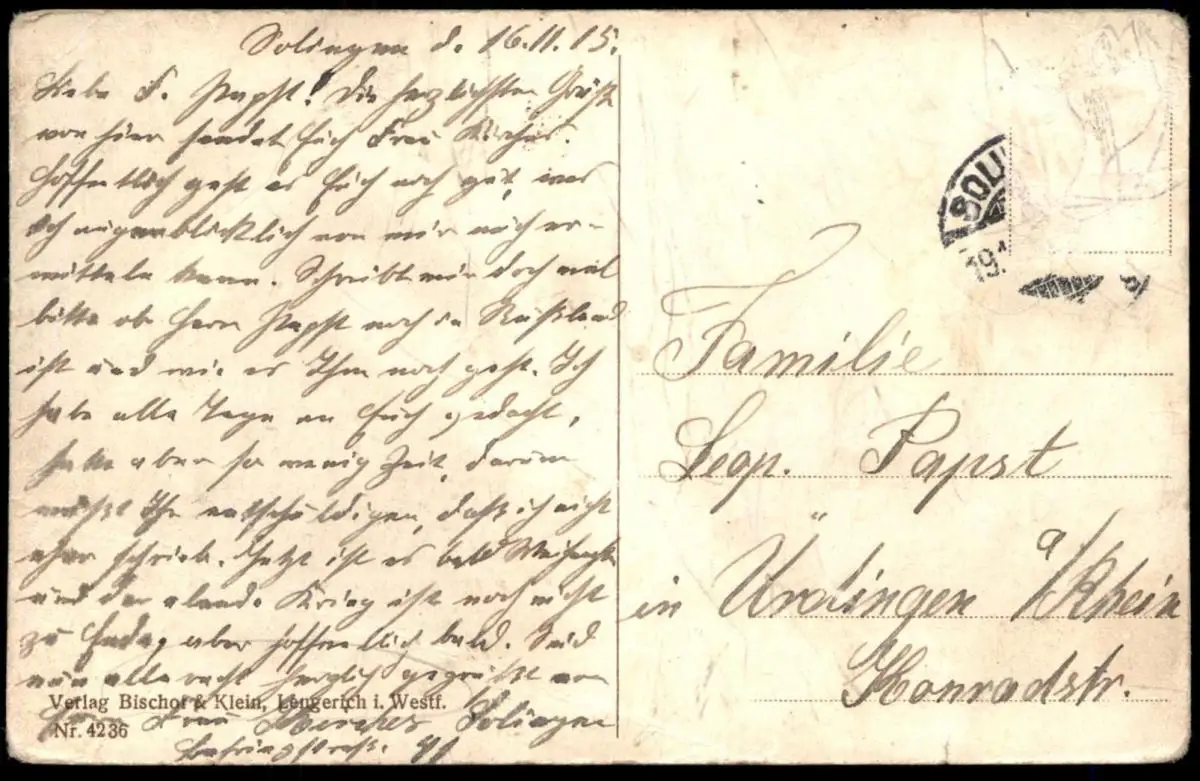 Solingen d. 16.11.15.
Liebe F. Papst! Die herzlichsten Grüße
von hier sendet Euch Frau Kirches.
Hoffentlich geht es Euch noch gut, was
ich augenblicklich von mir auch er-
mitteln kann. Schreibt mir doch mal
bitte ob Herr Papst noch in Rußland
ist und wie es Ihm noch geht. Ich
habe alle Tage an Euch gedacht,
hatte aber so wenig Zeit, darum
müßt Ihr entschuldigen, daß ich nicht
eher schrieb. Jetzt ist es bald Weihnacht
und der elende Krieg ist noch nicht
zu Ende, aber hoffentlich bald. Seid
nun alle recht herzlich gegrüßt von
Frau Kirches Solingen
41
Verlag Bischof & Klein, Lengerich i. Westf.
Nr. 4236
SOLI
191
Familie
Leop. Papst
in Ürdingen a/Rhein
Konradstr.